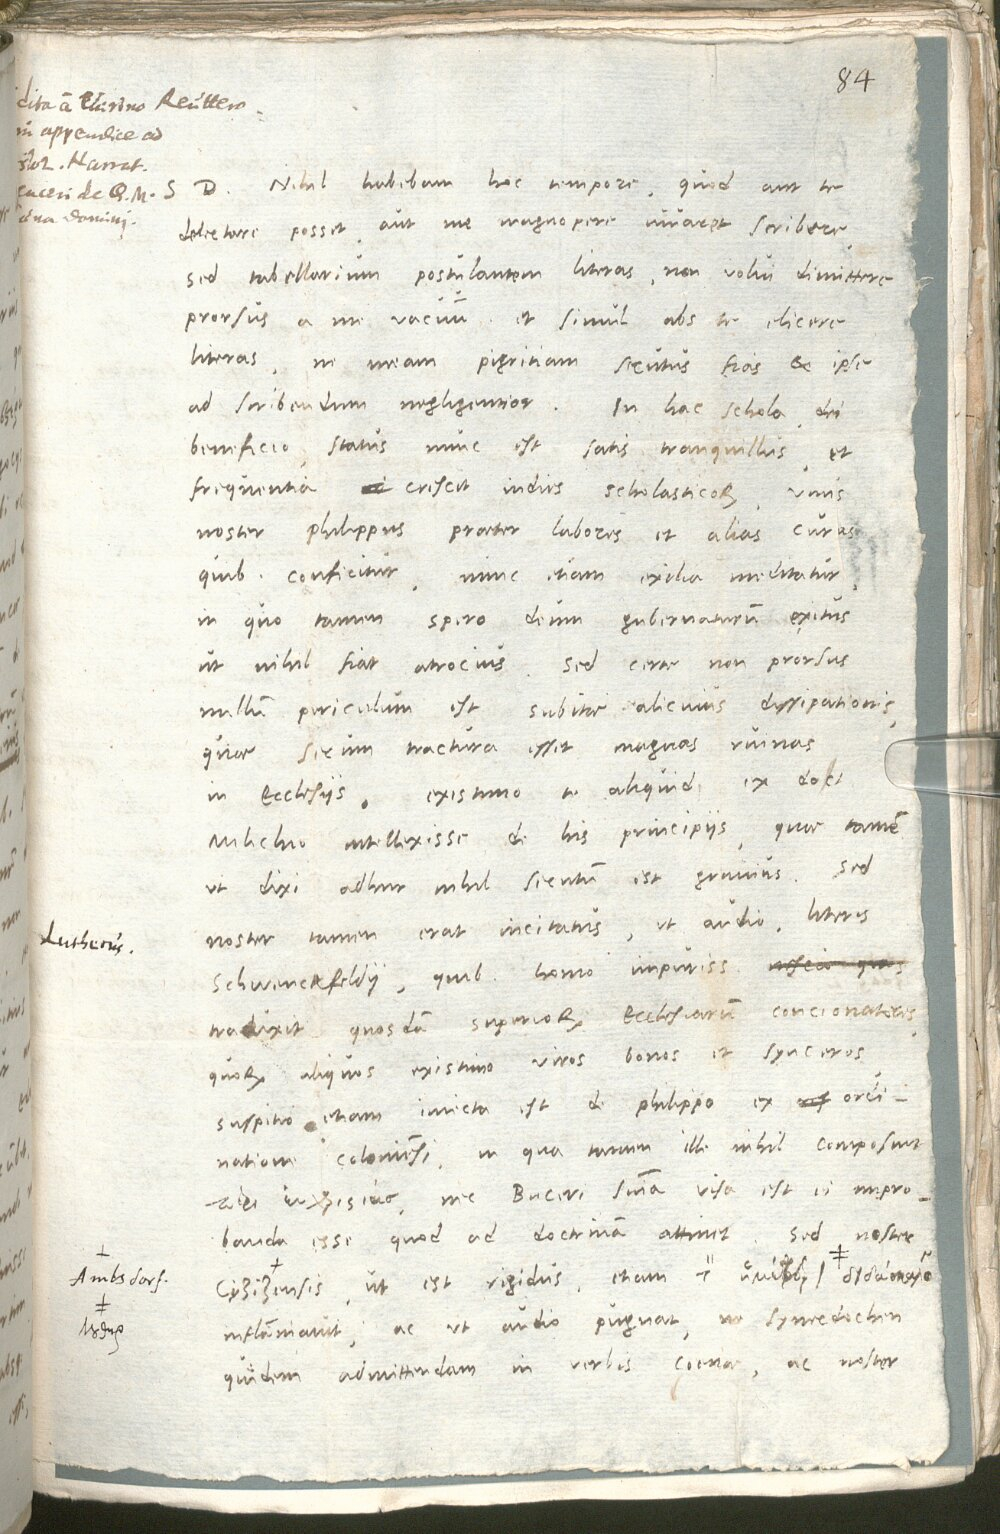 84
dita à Quirino Reuttero
in appendice ad
Narrat.
de Q. M.
cena domini.
S D. Nihil habebam hoc tempore, quod aut te
delectare posset, aut me magnopere iuvaret scribere,
sed tabellarium postulantem literas, non volui dimittere
prorsus a me vacuū. et simul abs te elicere
literas, ne meam pigritiam secutus fias & ipse
ad scribendum negligentior. In hac schola, dei
beneficio, status nunc est satis tranquillus, et
frequentia crescit indies scholasticoꝝ, unus
noster philippus praeter labores et alias curas
quib. conficitur, nunc etiam exilia meditatur,
in quo tamen spero deum gubernaturū exitus
ut nihil fiat atrocius. Sed certe non prorsus
nullū periculum est subitae alicuius dissipationis,
quae secum tractura esset magnas ruinas
in Ecclesijs. existimo te aliquid ex doct
Milichio intellexisse de his principijs, quae tamē
ut dixi adhuc nihil secutū est gravius. Sed
Lutherus.
noster tamen erat incitatus, ut audio, literis
Schwenckfeldij, quib. homo impuriss.
traduxit quosdā superioꝝ Ecclesiarū concionatores,
quoꝝ aliquos existimo viros bonos et synceros
suspitio etiam iniecta est de philippo ex ordi-
natione coloniēsi, in qua tamen ille nihil composuit
nec Buceri sn̄ia visa est ei impro-
banda esse quod ad doctrinā attinet. Sed noster
Ambsdorf.
Cyzizensis, ut est rigidus, etiam
inflāmavit, ac ut audio pugnat, ne synecdochen
quidem admittendam in verbis coenae, ac noster